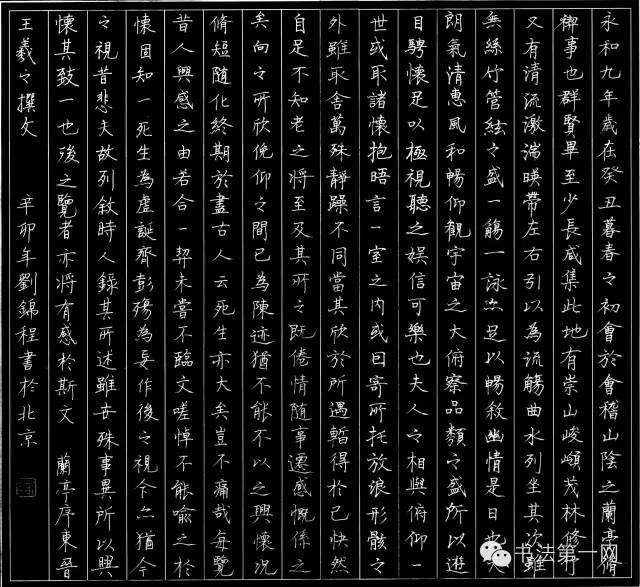 永和九年歲在癸丑暮春之初會於會稽山陰之蘭亭脩
禊事也群賢畢至少長咸集此地有崇山峻嶺茂林修竹
又有清流激湍暎帶左右引以為流觴曲水列坐其次雖
無絲竹管絃之盛一觴一詠亦足以暢敘幽情是日也天
朗氣清惠風和暢仰觀宇宙之大俯察品類之盛所以遊
目騁懷足以極視聽之娛信可樂也夫人之相與俯仰一
世或取諸懷抱晤言一室之內或因寄所託放浪形骸之
外雖取舍萬殊靜躁不同當其欣於所遇暫得於己快然
自足不知老之將至及其所之既倦情隨事遷感慨係之
矣向之所欣俛仰之間已為陳迹猶不能不以之興懷況
脩短隨化終期於盡古人云死生亦大矣豈不痛哉每覽
昔人興感之由若合一契未嘗不臨文嗟悼不能喻之於
懷固知一死生為虛誕齊彭殤為妄作後之視今亦猶今
之視昔悲夫故列敘時人錄其所述雖世殊事異所以興
懷其致一也後之覽者亦將有感於斯文 蘭亭序東晉
王羲之撰文 辛卯年劉錦程書於北京
书法第一网